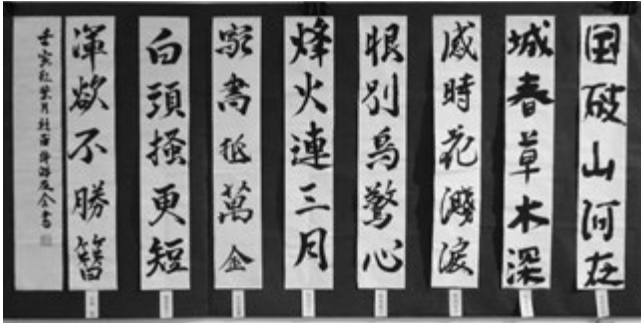 国破山河在
城春草木深
感時花濺淚
恨別鳥驚心
烽火連三月
家書抵萬金
白頭搔更短
渾欲不勝簪